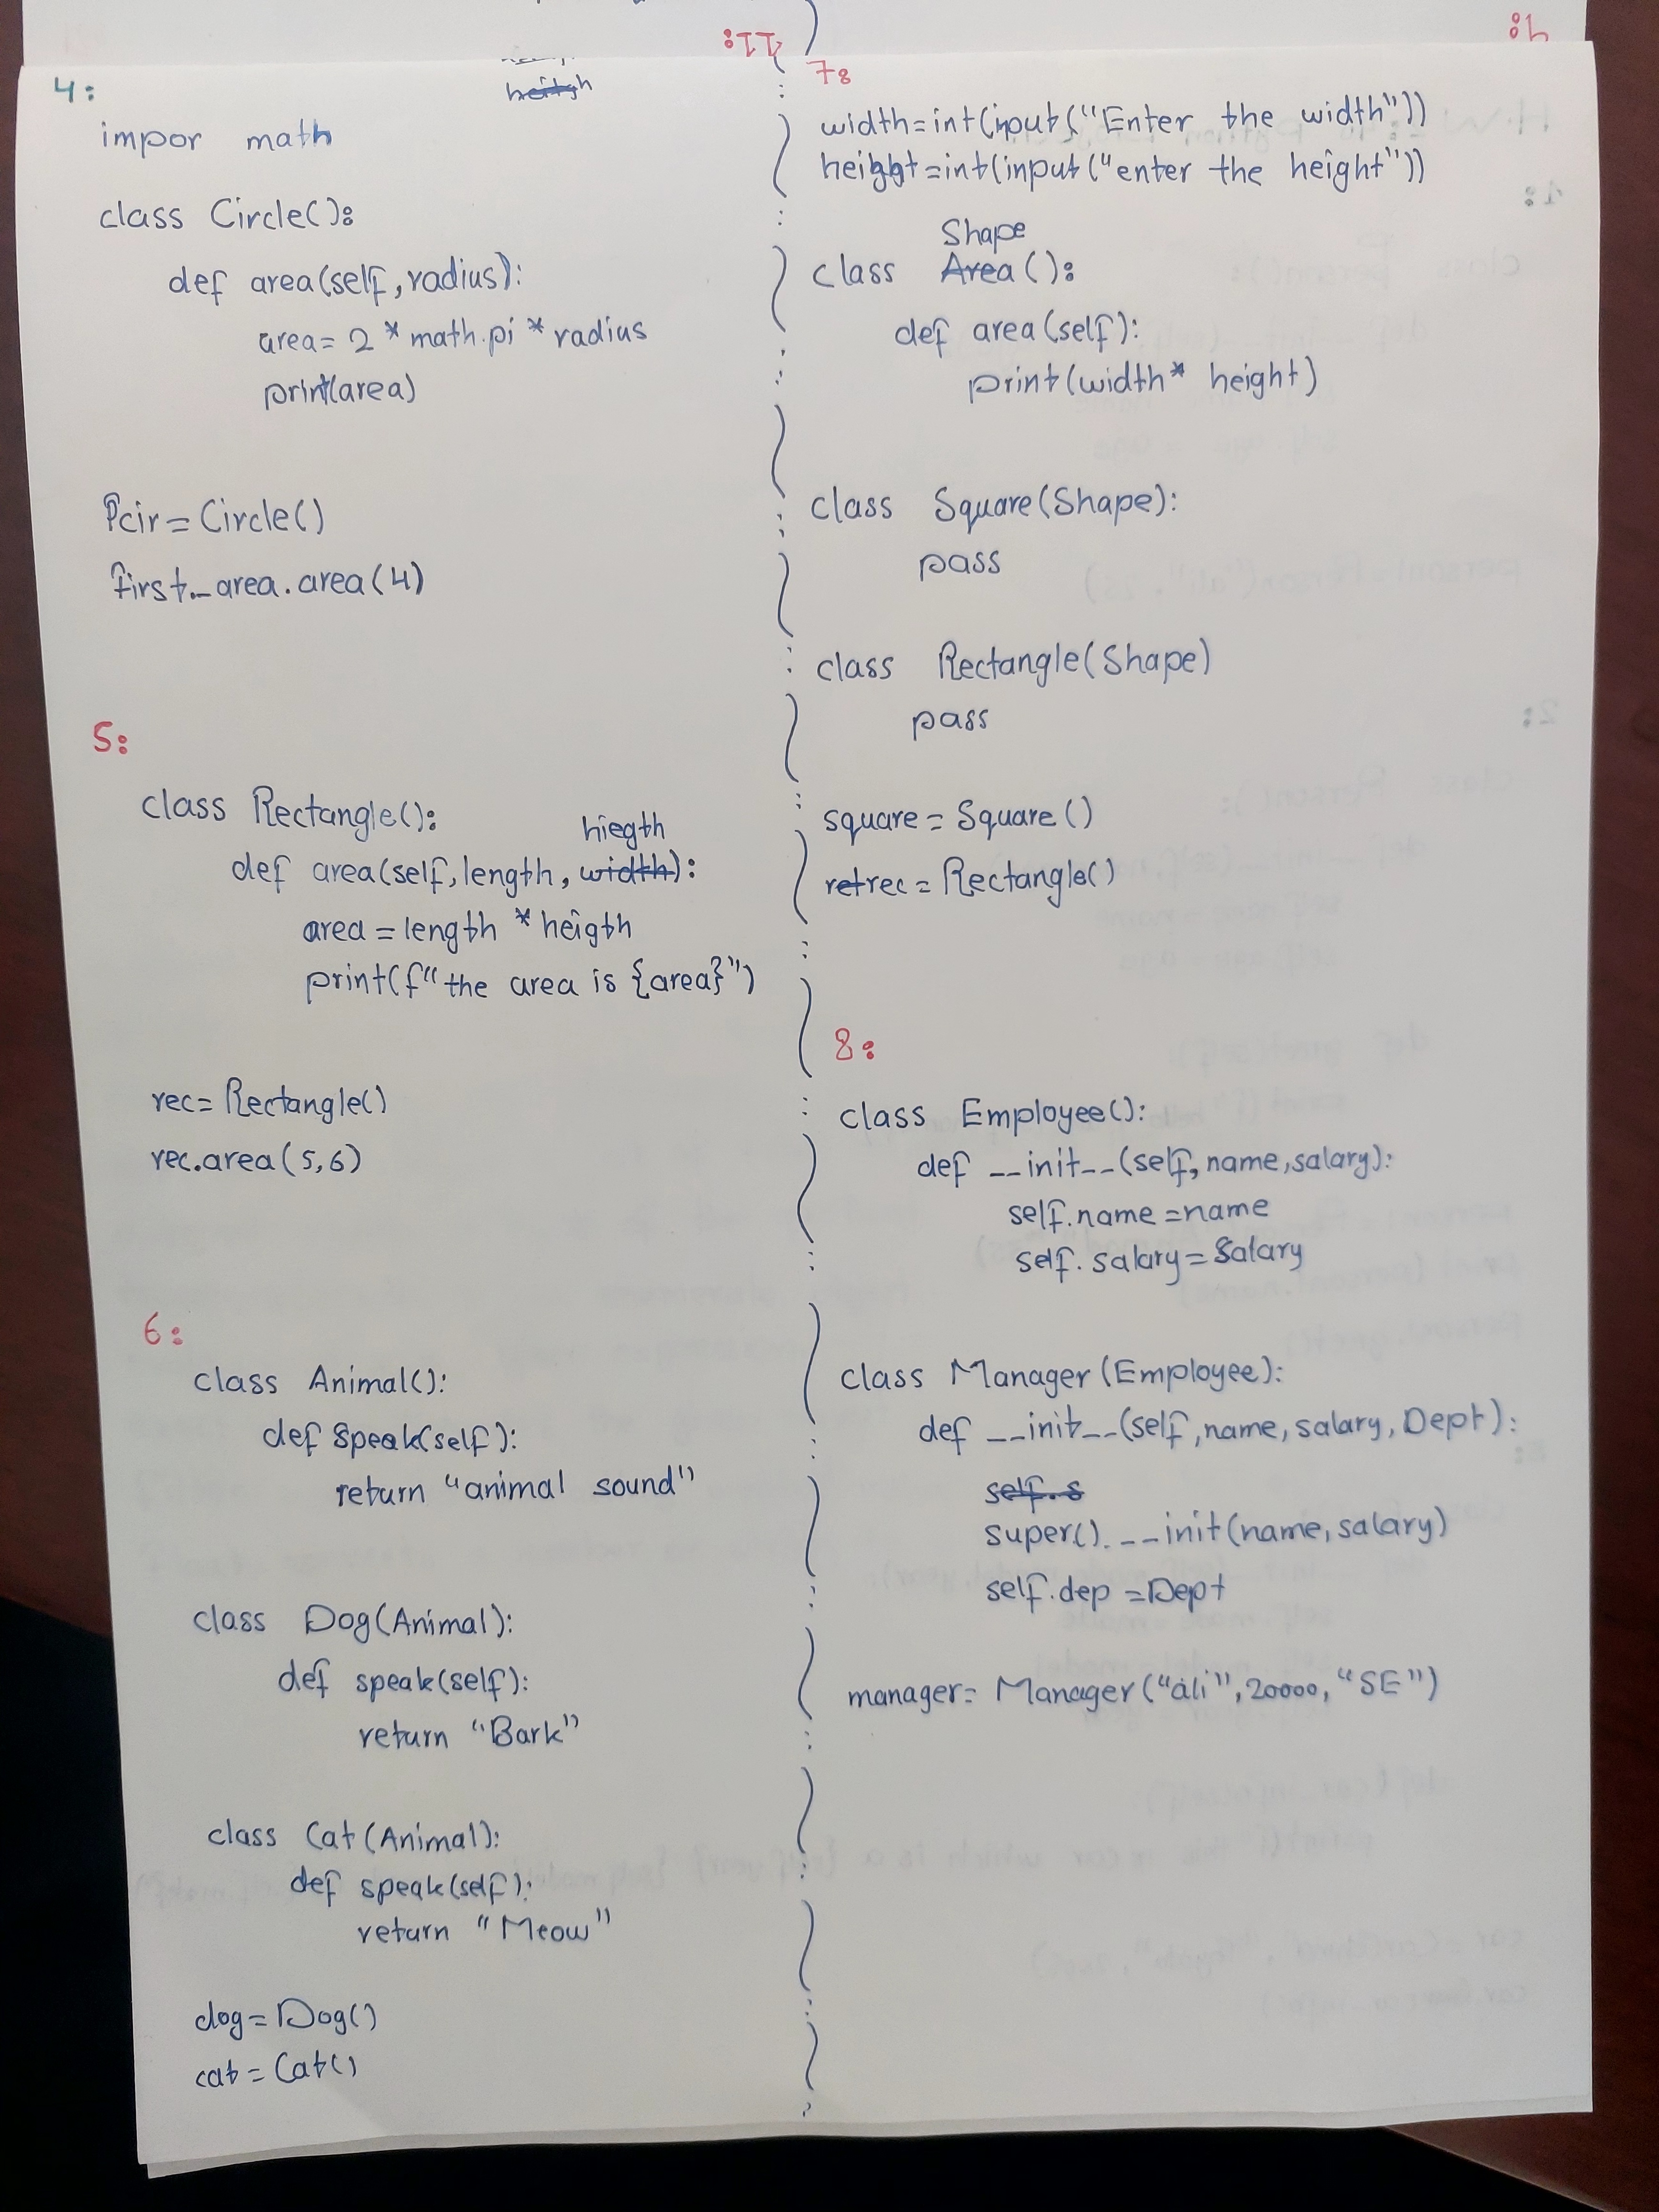 4:
impor math
class Circle():
def area(self, radius):
area= 2 * math.pi * radius
print(area)
Pcir = Circle()
first_area.area(4)
5:
class Rectangle():
hiegth
def area(self, length, width):
area = length * heigth
print(f"the area is {area}")
rec= Rectangle()
rec.area(5,6)
6:
class Animal():
def speak(self):
return "animal sound"
class Dog(Animal):
def speak(self):
return "Bark"
class Cat(Animal):
def speak(self):
return "Meow"
dog= Dog()
cat = Cat()
11:
7:
width=int(input("Enter the width"))
height=int(input("enter the height"))
Shape
class Area():
def area(self):
print(width* height)
class Square(Shape):
pass
class Rectangle(Shape)
pass
square = Square()
retrec = Rectangle()
8:
class Employee():
def __init__(self, name, salary):
self.name = name
self.salary = Salary
class Manager (Employee):
def __init__(self, name, salary, Dept):
self.s
super().__init(name, salary)
self.dep = Dept
manager= Manager("ali", 20000, "SE")